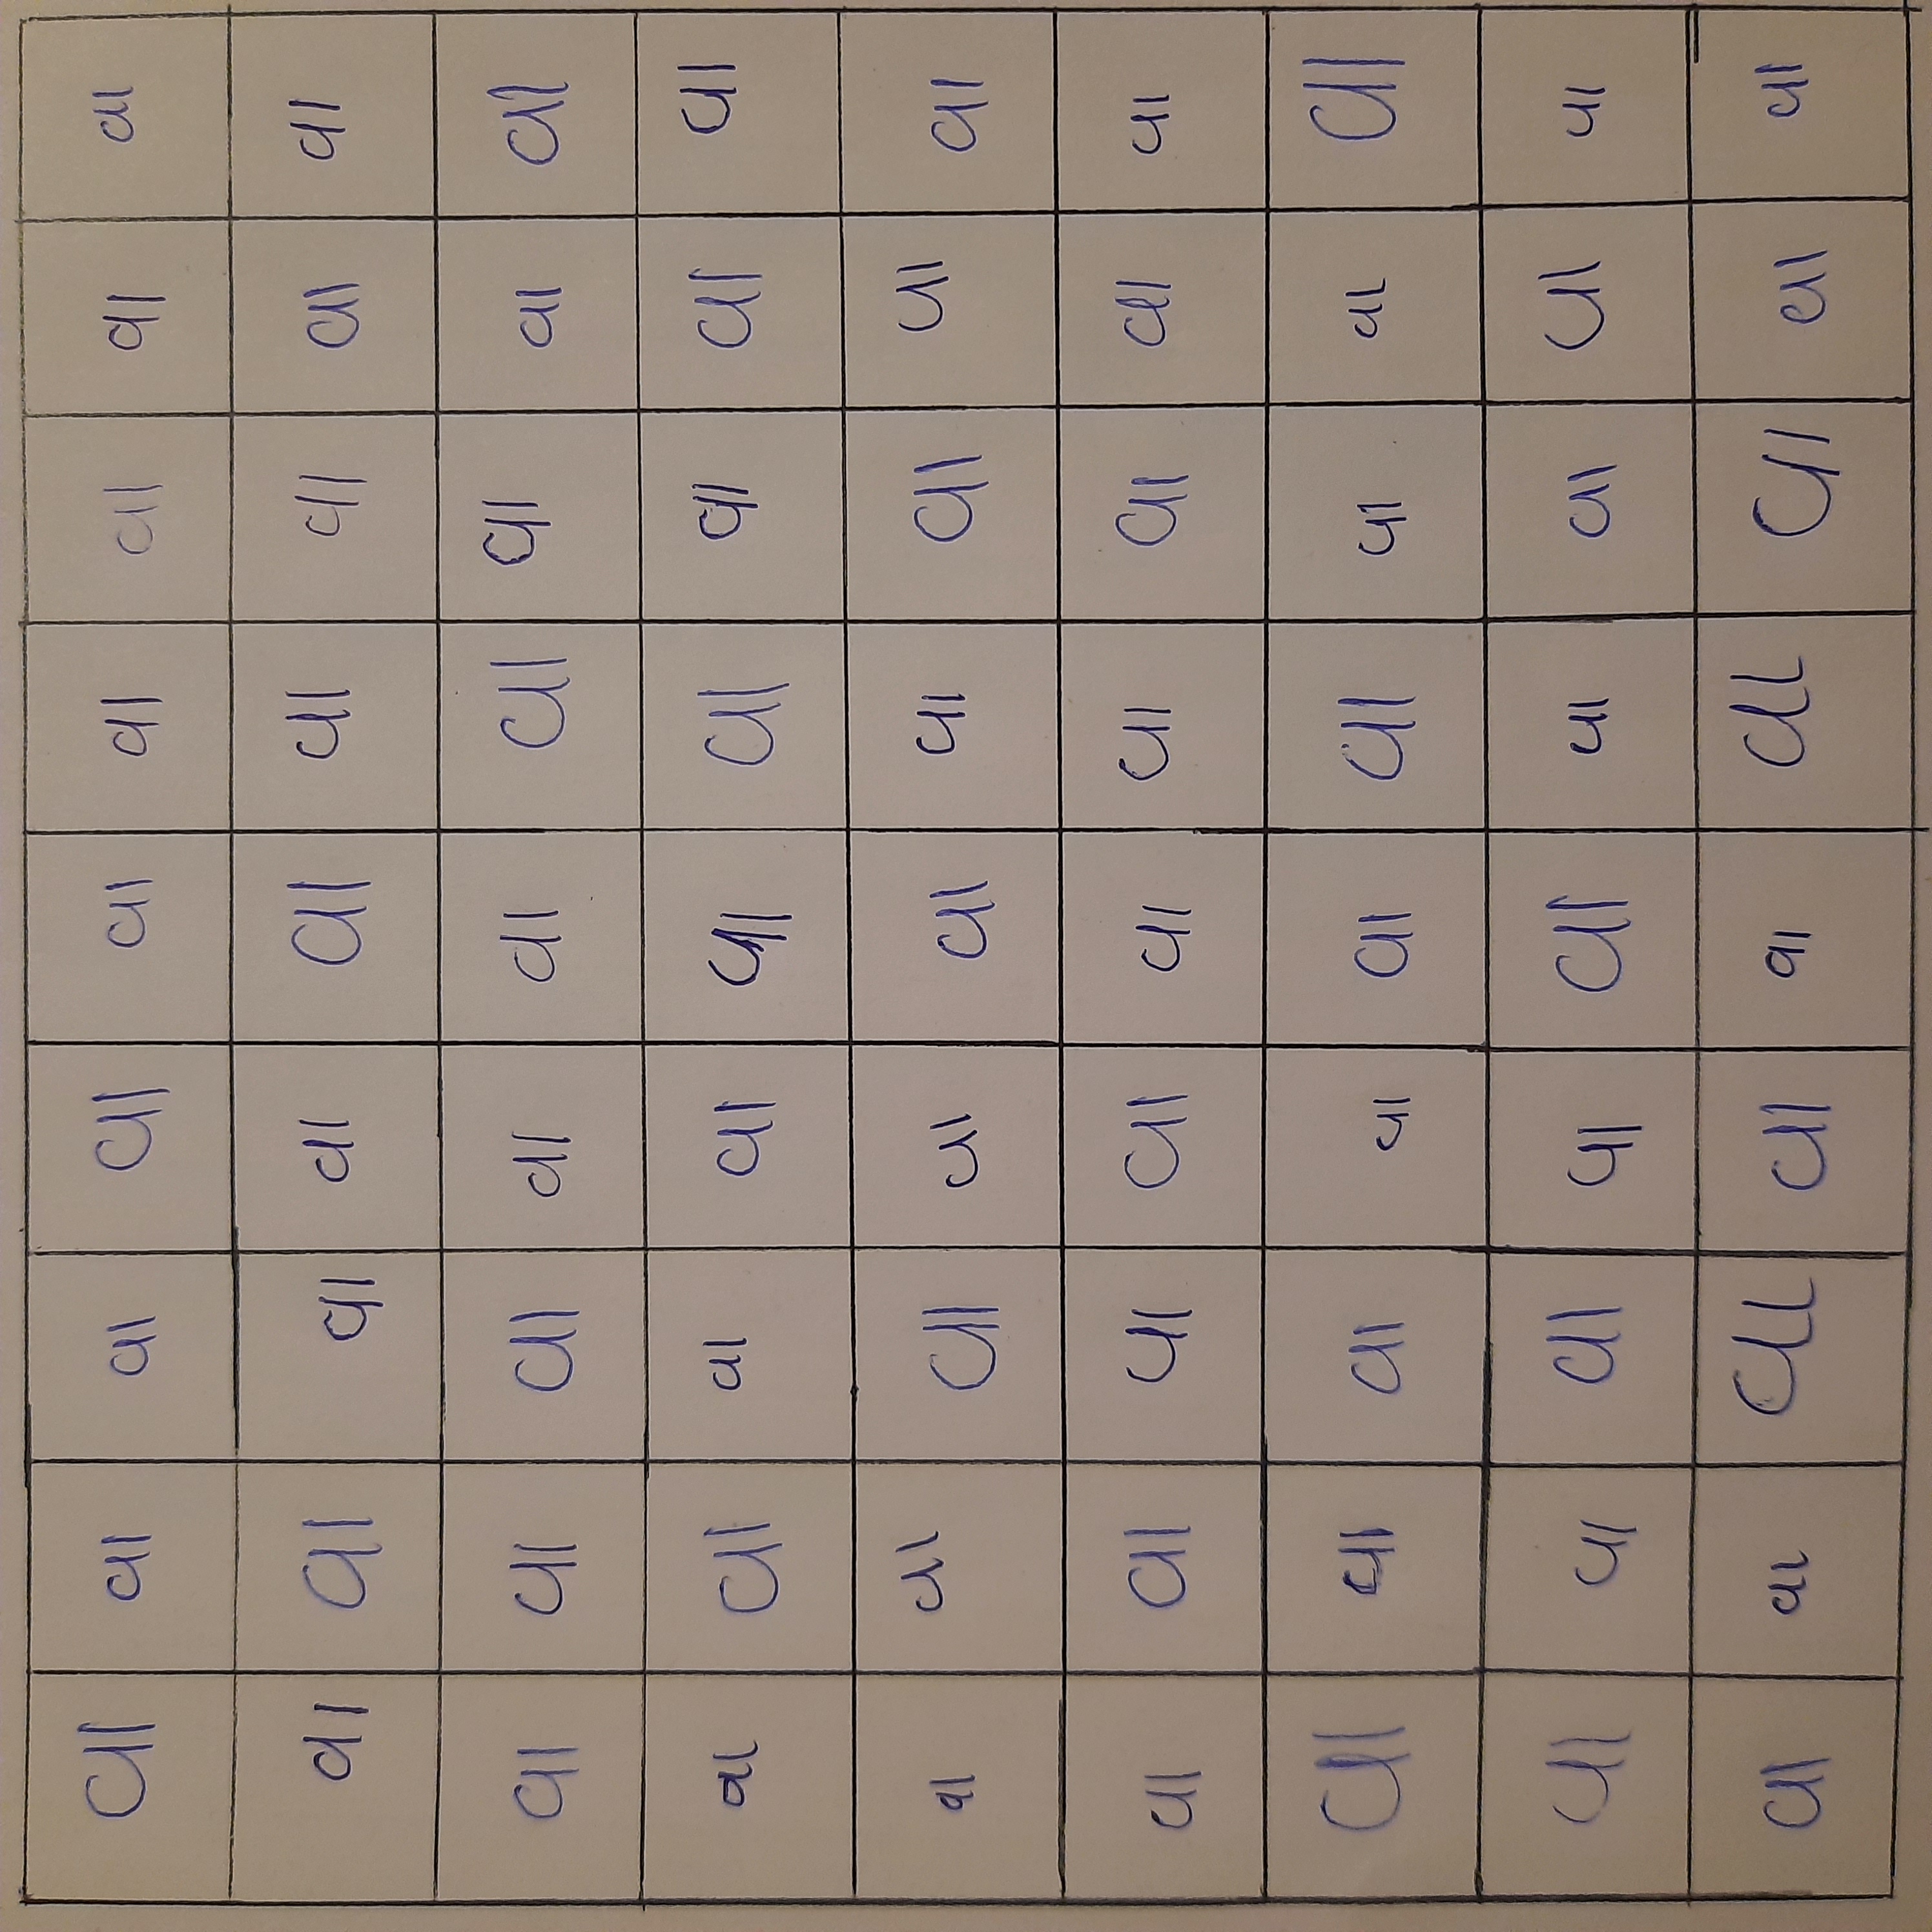 વા વા વા વા વા વા વા વા વા
વા વા વા વા વા વા વા વા વા
વા વા વા વા વા વા વા વા વા
વા વા વા વા વા વા વા વા વા
વા વા વા વા વા વા વા વા વા
વા વા વા વા વા વા વા વા વા
વા વા વા વા વા વા વા વા વા
વા વા વા વા વા વા વા વા વા
વા વા વા વા વા વા વા વા વા